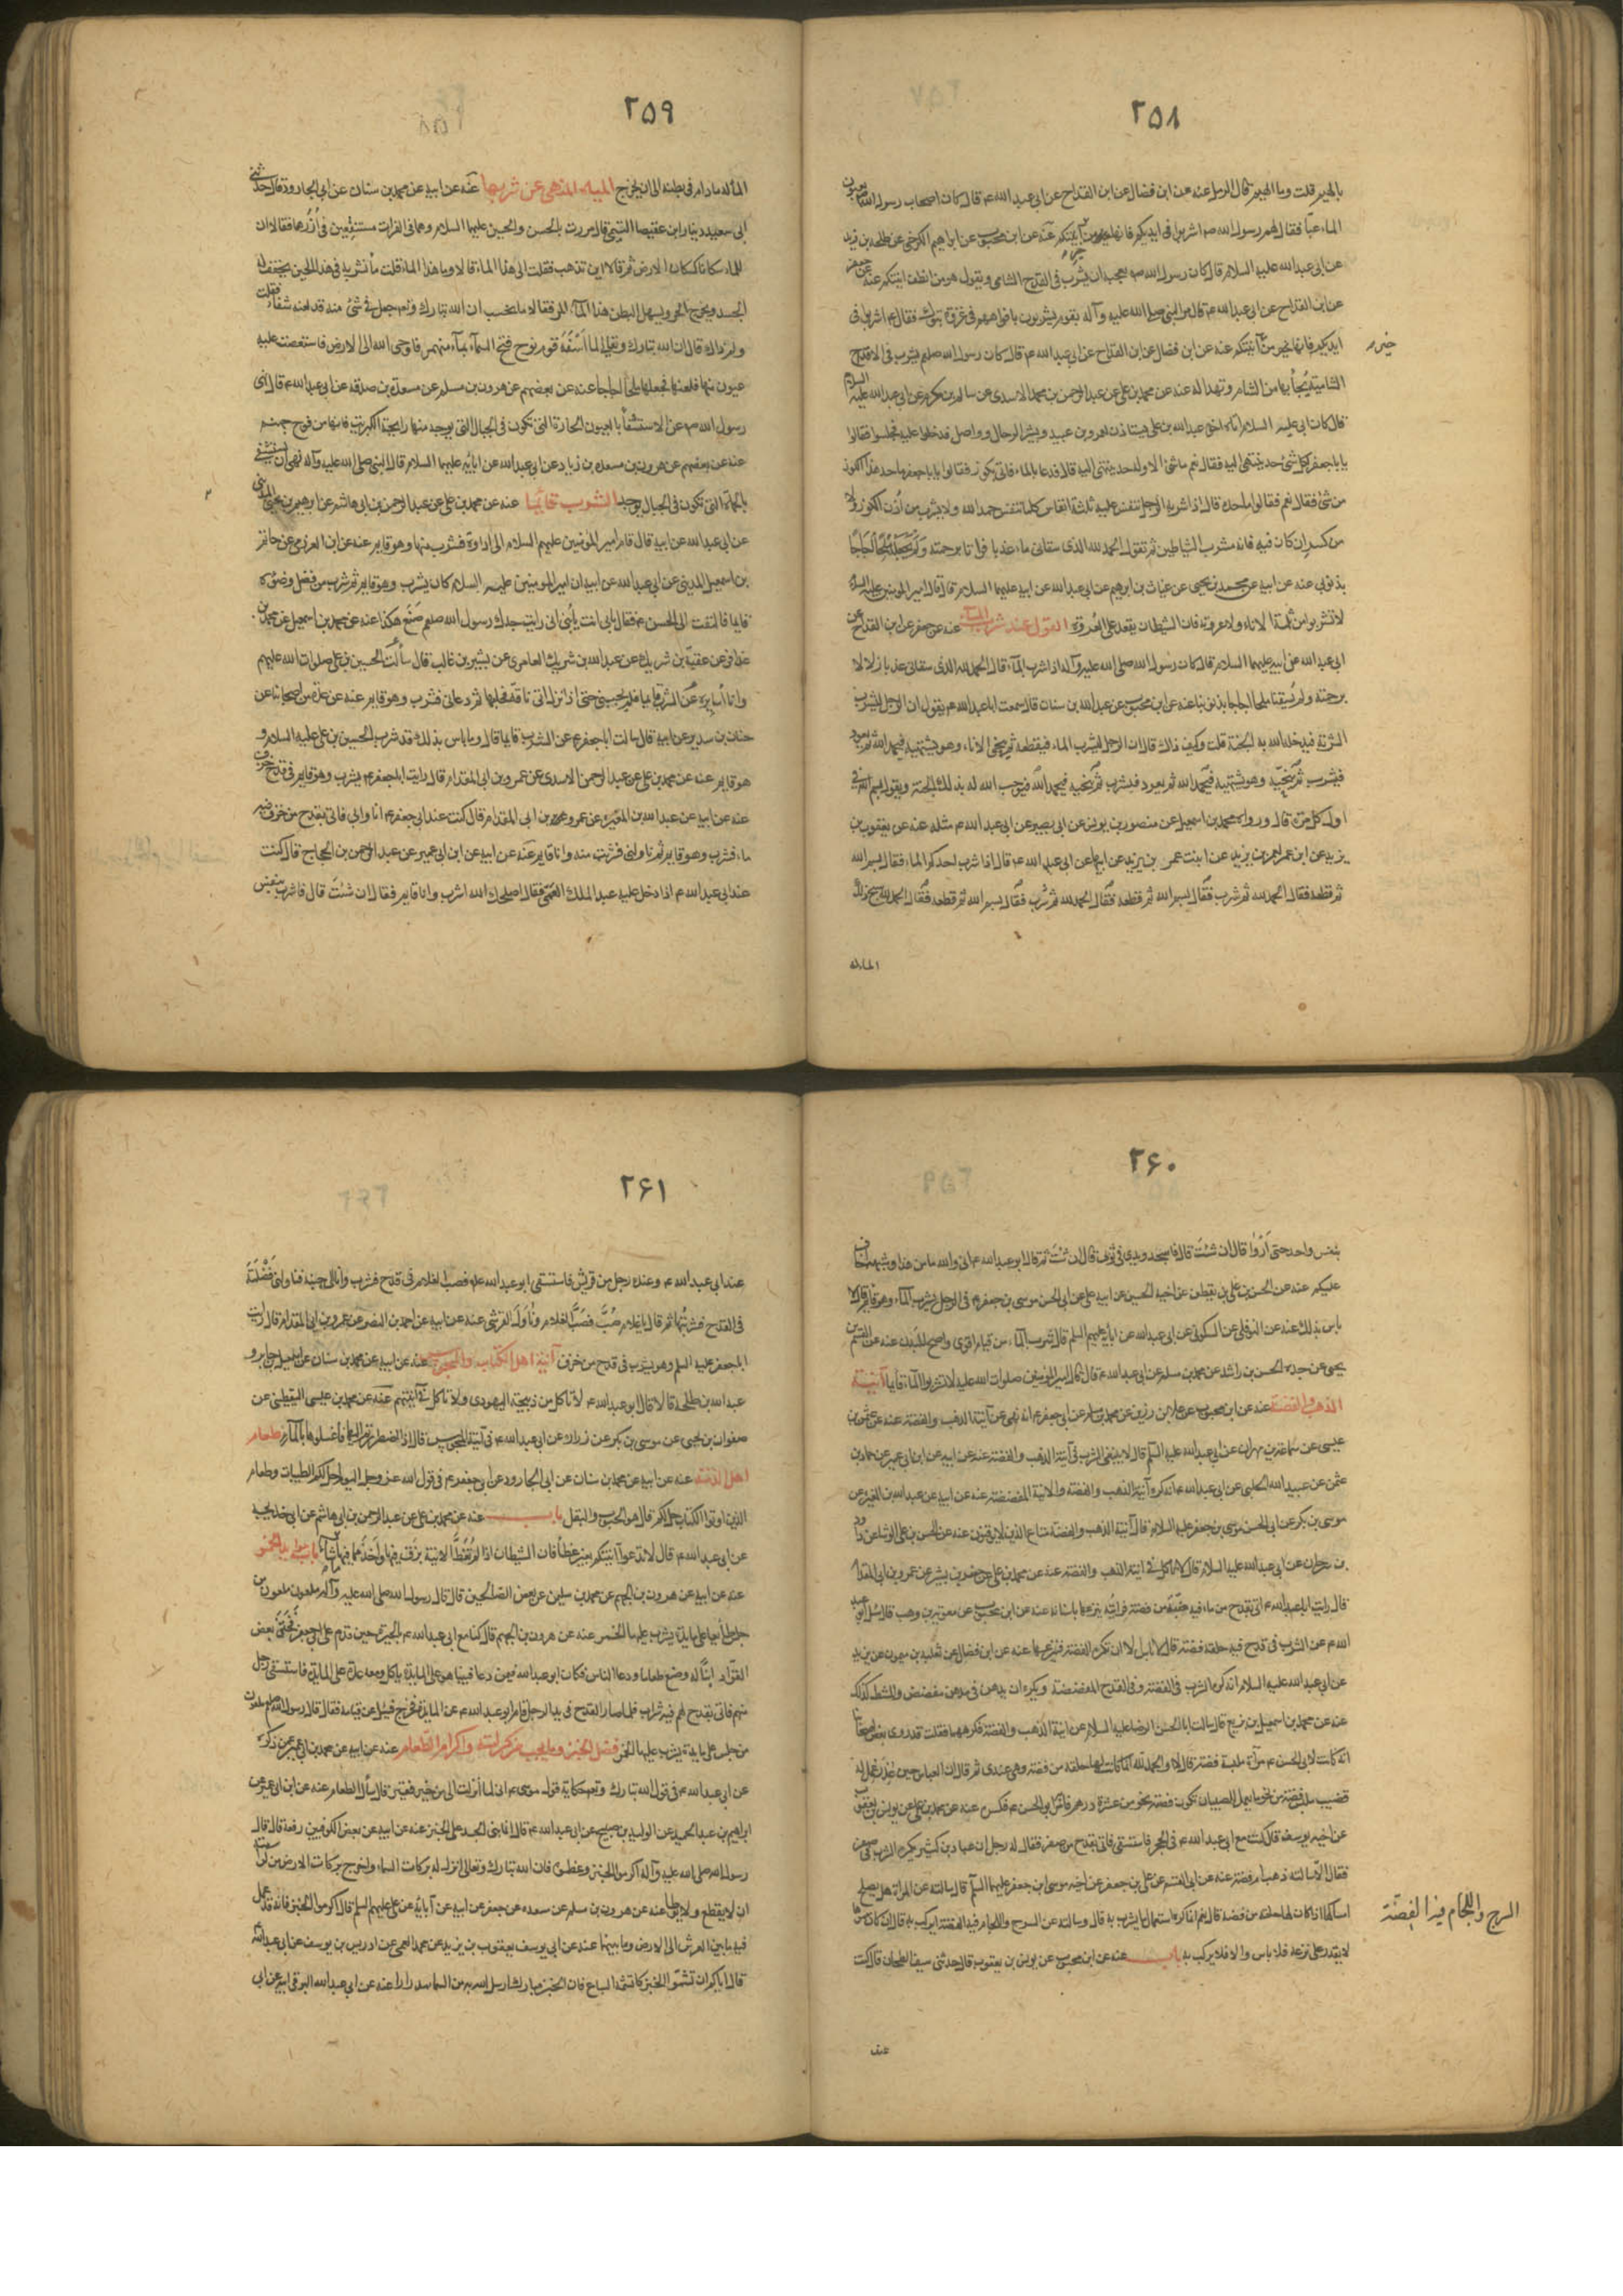 ٢٥٨
بالهيم قلت وما الهيم قال الرمل عنه عن ابن فضال عن ابن القداح عن ابى عبد الله ع قال كان اصحاب رسول الله
الماء عبّا فقال لهم رسول الله ص اشربوا فى ايديكم فانها من خير آنيتكم عنه عن ابن محبوب عن ابراهيم الكرخى عن طلحة بن زيد
عن ابى عبد الله عليه السلام قال كان رسول الله ص يعجبه ان يشرب فى القدح الشامى ويقول هو من انظف انيتكم عنه عن جعفر
عن ابن القداح عن ابى عبد الله ع قال مر النبى صلى الله عليه وآله بقوم يشربون بافواههم فى غزوة تبوك فقال ع اشربوا فى
ايديكم فانها خير من آنيتكم عنه عن ابن فضال عن ابن القداح عن ابى عبد الله ع قال كان رسول الله صلعم يشرب فى الاقداح
الشامية يُجآ بها من الشام وتهدا له عنه عن محمد بن على عن عبد الرحمن بن محمد الاسدى عن سالم بن مكرم عن ابى عبد الله عليه السلام
قال كان ابى عليه السلام
يا با جعفر لكل شئ حد ينتهى اليه فقال نعم ما شئ الا وله حد ينتهى اليه قال فدعا بالماء فاتى بكوز فقالوا يا با جعفر ما حد هذا الكوز
من شئ فقال نعم فقالوا ما حده قال اذا شربه الرجل تنفس عليه ثلثة انفاس كلما تنفس حمد الله ولا يشرب من اذن الكوز ولا
من كسر ان كان فيه فانه مشرب الشياطين ثم تقول الحمد لله الذى سقانى ماء عذبا فراتا برحمته ولم يجعله ملحا اجاجا
بذنوبى عنه عن ابيه عن محمد بن يحيى عن غياث بن ابراهيم عن ابى عبد الله عن ابيه عليهما السلام قال قال امير المومنين عليه السلام
لا تشربوا من ثلمة الاناء ولا عروته فان الشيطان يقعد على العروة القول عند شرب الماء عنه عن جعفر عن ابن القداح عن
ابى عبد الله عن ابيه عليهما السلام قال كان رسول الله صلى الله عليه وآله اذا شرب الماء قال الحمد لله الذى سقانى عذبا زلالا
برحمته ولم يسقنا ملحا اجاجا بذنوبنا عنه عن ابن محبوب عن عبد الله بن سنان قال سمعت ابا عبد الله ع يقول ان الرجل ليشرب
الشربة فيدخله الله به الجنة قلت وكيف ذاك قال ان الرجل ليشرب الماء فيقطعه ثم ينحى الاناء وهو يشتهيه فيحمد الله ثم يعود
فيشرب ثم ينحيه وهو يشتهيه فيحمد الله ثم يعود فيشرب ثم ينحيه فيحمد الله فيوجب الله له بذلك الجنة ويقول بسم الله فى
اول كل مرة قال ورواه محمد بن اسمعيل عن منصور بن يونس عن ابى بصير عن ابى عبد الله ع مثله عنه عن يعقوب بن
يزيد عن ابن عم لعمر بن يزيد عن ابنت عمر بن يزيد عن ابيها عن ابى عبد الله ع قال اذا شرب احدكم الماء فقال بسم الله
ثم قطعه فقال الحمد لله ثم شرب فقال بسم الله ثم قطعه فقال الحمد لله ثم شرب فقال بسم الله ثم قطعه فقال الحمد لله سبح ذلك
الماء له
٢٥٩
الماء له ما دام فى بطنه الى ان يخرج المياه المنهى عن شربها عنه عن ابيه عن محمد بن سنان عن ابى الجارود قال حدثنى
ابى سعيد دينار ابن عقيصا التيمى قال مررت بالحسن والحسين عليهما السلام وهما فى الفرات مستنقعين فى ازرهما فقالا ان
للماء سكانا كسكان الارض ثم قالا اين تذهب فقلت الى هذا الماء قالا وما هذا الماء قلت
الجسد ويخرج الحر ويسهل البطن هذا الماء المر فقالا ما نحسب ان الله تبارك وتعالى جعل فى شئ منه قد لعنه شفاء فقلت
ولم ذاك قال ان الله تبارك وتعالى لما آسفه قوم نوح فتح السمآء بمآء منهمر فاوحى الله الى الارض فاستعصت عليه
عيون منها فلعنها فجعلها ملحا اجاجا عنه عن بعضهم عن هرون بن مسلم عن مسعدة بن صدقة عن ابى عبد الله ع قال نهى
رسول الله ص عن الاستشفاء بالعيون الحارة التى تكون فى الجبال التى يوجد منها رايحة الكبريت فانها من فوح جهنم
عنه عن بعضهم عن هرون بن مسعدة بن زياد عن ابى عبد الله عن ابائه عليهما السلام قال النبى صلى الله عليه وآله نهى ان يستشفى
بالحمآة التى تكون فى الجبال الشرب قايما عنه عن محمد بن على عن عبد الرحمن بن ابى هاشم عن ابرهيم بن يحيى المدينى
عن ابى عبد الله عن ابيه قال قام امير المومنين عليهم السلام الى اداوة فشرب منها وهو قايم عنه عن ابن العرزمى عن حاتم
بن اسمعيل المدينى عن ابى عبد الله عن ابيه ان امير المومنين عليه السلام كان يشرب وهو قايم ثم شرب من فضل وضوئه
قايما فالتفت الى الحسن ع فقال بابى انت يا بنى انى رايت جدك رسول الله صلعم صنع هكذا عنه عن محمد بن اسمعيل عن محمد بن
عذافر عن عقبة بن شريك عن عبد الله بن شريك العامرى عن بشير بن غالب قال سألت الحسين بن على صلوات الله عليهم
وانا اسايره عن الشرب قايما فلم يجبنى حتى اذا نزل اتى ناقة فحلبها ثم دعانى فشرب وهو قايم عنه عن عدة من اصحابنا عن
حنان بن سدير عن ابيه قال سالت ابا جعفر ع عن الشرب قايما قال وما باس بذلك قد شرب الحسين بن على عليه السلام و
هو قايم عنه عن محمد بن على عن عبد الرحمن الاسدى عن عمرو بن ابى المقدام قال رايت ابا جعفر ع يشرب وهو قايم فى قدح خزف
عنه عن ابيه عن عبد الله بن المغيره عن عمرو بن ابى المقدام قال كنت عند ابى جعفر ع انا وابى فاتى بقدح من خزف فيه
ماء فشرب وهو قايم ثم ناوله ابى فشرب منه وانا قايم عنه عن ابيه عن ابن ابى عمير عن عبد الرحمن بن الحجاج قال كنت
عند ابى عبد الله ع اذا دخل عليه عبد الملك القمى فقال اصلحك الله اشرب وانا قايم فقال ان شئت قال فاشرب بنفس
٢۶٠
بنفس واحد حتى اروا قال ان شئت قال فاسجد ويدى فى ثوبى قال ان شئت ثم قال ابو عبد الله ع انى والله ما من هذا وشبهه اخاف
عليكم عنه عن الحسن بن على بن يقطين عن اخيه الحسين عن ابيه على عن ابى الحسن موسى بن جعفر ع فى الرجل يشرب الماء وهو قايم قال لا
باس بذلك عنه عن النوفلى عن السكونى عن ابى عبد الله عن ابائه عليهم السلم قال شرب المآء من قيام اقوى واصح للبدن عنه عن القسم بن
يحيى عن جده الحسن بن راشد عن محمد بن مسلم عن ابى عبد الله ع قال قال امير المومنين صلوات الله عليه لا تشربوا المآء قايما آنية
الذهب والفضة عنه عن ابن محبوب عن علا بن رزين عن محمد بن مسلم عن ابى جعفر ع انه نهى عن آنية الذهب والفضة عنه عن عثمان بن
عيسى عن سماعة بن مهران عن ابى عبد الله عليه السلم قال لا ينبغى الشرب فى آنية الذهب والفضة عنه عن ابيه عن ابن ابى عمير عن حماد بن
عثمن عن عبيد الله الحلبى عن ابى عبد الله ع انه كره آنية الذهب والفضة والانية المفضضة عنه عن ابيه عن عبد الله بن المغيرة عن
موسى بن بكر عن ابى الحسن موسى بن جعفر عليه السلام قال آنية الذهب والفضة متاع الذين لا يوقنون عنه عن الحسن بن على الوشا عن داود
بن سرحان عن ابى عبد الله عليه السلام قال لا تاكل فى انية الذهب والفضة عنه عن محمد بن على عن جعفر بن بشير عن عمرو بن ابى المقدام
قال رايت ابا عبد الله ع اتى بقدح من ماء فيه ضبة من فضة فرايته ينزعها باسنانه عنه عن ابن محبوب عن معوية بن وهب قال سئل ابو عبد
الله ع عن الشرب فى قدح فيه حلقة فضة قال لا باس الا ان تكره الفضة فتنزعها عنه عن ابن فضال عن ثعلبة بن ميمون عن بريد
عن ابى عبد الله عليه السلام انه كره الشرب فى الفضة وفى القدح المفضضة ويكره ان يدهن فى مدهن مفضض والمشط كذلك
عنه عن محمد بن اسمعيل بن بزيع قال سالت ابا الحسن الرضا عليه السلام عن انية الذهب والفضة فكرههما فقلت قد روى بعض اصحابنا
انه كانت لابى الحسن ع مرآة ملبسة فضة قال لا والحمد لله انما كانت لها حلقة من فضة وهى عندى ثم قال ان العباس حين عذر عمل له
قضيب ملبس فضة من نحو ما يعمل للصبيان تكون فضة نحو من عشرة درهم فامر به ابو الحسن ع فكسر عنه عن محمد بن على عن يونس بن يعقوب
عن اخيه يوسف قال كنت مع ابى عبد الله ع فى الحجر فاستسقى فاتى بقدح من صفر فقال له رجل ان عباد بن كثير يكره الشرب فى صفر
فقال الا سالته ذهب ام فضة عنه عن ابى القسم عن على بن جعفر عن اخيه موسى ابن جعفر عليهما السلم قال سالته عن المراة هل يصلح
امساكها اذا كان لها حلقة من فضة قال نعم انما كره استعمال ما يشرب به قال وسالته عن السرج واللجام فيه الفضة ايركب به قال ان كان مموها
لا يقدر على نزعه فلا باس والا فلا يركب به باب عنه عن ابن محبوب عن يونس بن يعقوب قال حدثنى سيف الطحان قال كنت
السرج واللجام فيه الفضة
عند
٢۶١
عند ابى عبد الله ع وعنده رجل من قريش فاستسقى ابو عبد الله ع فصب الغلام فى قدح فشرب وانا الى جنبه فناولنى فضلة
فى القدح فشربتها ثم قال يا غلام صب فصب الغلام وناول القرشى عنه عن ابيه عن احمد بن النضر عن عمرو بن ابى المقدام قال رايت
ابا جعفر عليه السلم وهو يشرب فى قدح من خزف آنية اهل الكتاب والمجوس عنه عن ابيه عن محمد بن سنان عن اسمعيل بن جابر و
عبد الله بن طلحة قالا قال ابو عبد الله ع لا تاكل من ذبيحة اليهودى ولا تاكل فى آنيتهم عنه عن محمد بن عيسى اليقطينى عن
صفوان بن يحيى عن موسى بن بكر عن زرارة عن ابى عبد الله ع فى آنية المجوس قال اذا اضطررتم اليها فاغسلوها بالمآء طعام
اهل الذمة عنه عن ابيه عن محمد بن سنان عن ابى الجارود عن ابى جعفر ع فى قول الله عز وجل اليوم احل لكم الطيبات وطعام
الذين اوتوا الكتاب حل لكم قال هو الحبوب والبقل باب عنه عن محمد بن على عن عبد الرحمن بن ابى هاشم عن ابى خديجة
عن ابى عبد الله ع قال لا تدعوا آنيتكم بغير غطا فان الشيطان اذا لم تغط الانية بزق فيها واخذ مما فيها ما شاء
عنه عن ابيه عن هرون بن الجهم عن محمد بن سليمن عن بعض الصالحين قال قال رسول الله صلى الله عليه وآله ملعون ملعون من
جلس طائعا على مايدة يشرب عليها الخمر عنه عن هرون بن الجهم قال كنا مع ابى عبد الله ع بالحيرة حين قدم على ابى جعفر فختن بعض
القواد ابنا له وضع طعاما ودعا الناس فكان ابو عبد الله فيمن دعا فبينا هو على المايدة ياكل ومعه عدة على المايدة فاستسقى رجل
منهم فاتى بقدح لهم فيه شراب فلما صار القدح فى يد الرجل قام ابو عبد الله ع عن المايدة فخرج فسئل عن قيامه فقال قال رسول الله صلعم ملعون
من جلس على مايدة يشرب عليها الخمر فضل الخبز وما يجب من كرامته واكرام الطعام عنه عن ابيه عن محمد بن ابى عمير عن ذكره
عن ابى عبد الله ع فى قول الله تبارك وتعالى حكاية قول موسى ع انى لما انزلت الى من خير فقير قال سأل الطعام عنه عن ابن ابى عمير عن
ابراهيم بن عبد الحميد عن الوليد بن صبيح عن ابى عبد الله ع قال انما بنى الجسد على الخبز عنه عن ابيه عن بعض الكوفيين رفعه قال قال
رسول الله صلى الله عليه وآله اكرموا الخبز وعظموه فان الله تبارك وتعالى انزل له بركات السماء واخرج بركات الارض من كرامته
ان لا يقطع ولا يوطا عنه عن هرون بن مسلم عن مسعده عن جعفر عن ابيه عن آبائه عن على عليهم السلم قال اكرموا الخبز فانه قد عمل
فيه ما بين العرش الى الارض وما بينهما عنه عن ابى يوسف يعقوب بن يزيد عن محمد القمى عن ادريس بن يوسف عن ابى عبد الله
قال اياكم ان تشموا الخبز كما تشمه السباع فان الخبز مبارك ارسل الله به من السما مدرارا عنه عن ابى عبد الله البرقى ابيه عن ابى